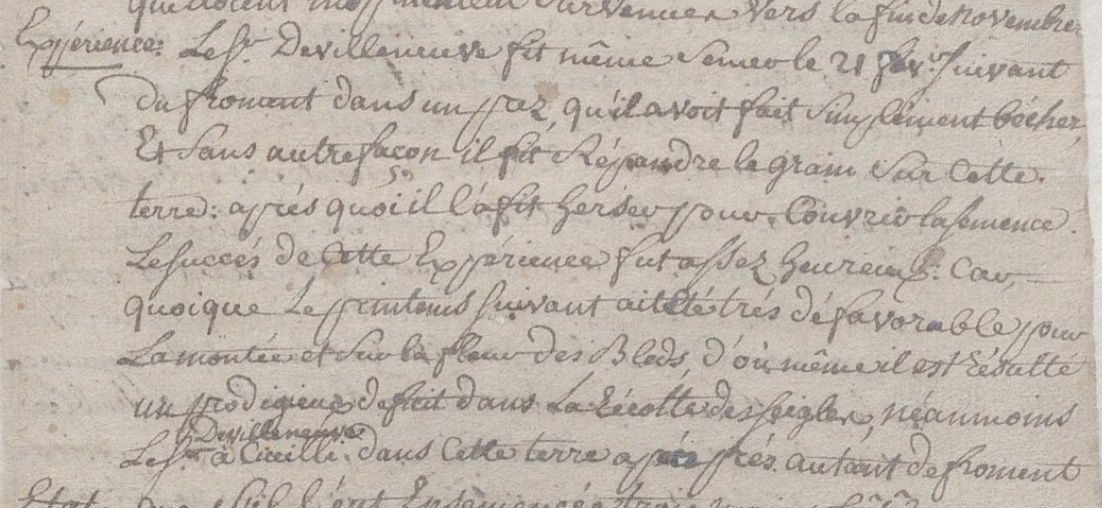 survenues vers la fin de novembre
Expérience: Le Sr. Devilleneuve fit même semer le 21 fév.r suivant
du froment dans un prez, qu'il avoit fait simplement bécher,
Et sans autre façon il fit Répandre le grain sur cette
terre: aprés quoi il l'a fit herser pour Couvrir la semence.
Le succés de cette Expérience fut assez heureux: Car,
quoique Le printems suivant ait été trés défavorable pour
La montée et sur la fleur des Bleds, d'où même il est résulté
un prodigieux deficit dans La Récolte des seigles, néanmoins
Le Sr. Devilleneuve à Cueilli dans cette terre à peu prés autant de froment
Etat que s'il l'eut Ensemencée trois